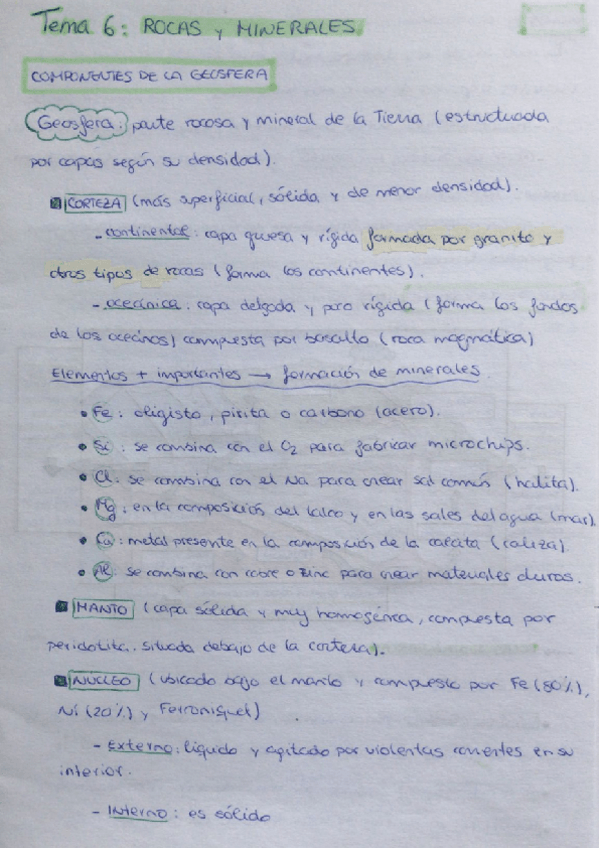 Tema 6: ROCAS y MINERALES
COMPONENTES DE LA GEOSFERA
Geosfera: parte rocosa y mineral de la Tierra (estructurada
por capas según su densidad).
CORTEZA (más superficial, sólida y de menor densidad).
- continental: capa gruesa y rígida formada por granito y
otros tipos de rocas (forma los continentes).
- oceánica: capa delgada y poco rígida (forma los fondos
de los oceános) compuesta por basalto (roca magmática)
Elementos + importantes → formación de minerales.
• Fe: oligisto, pirita o carbono (acero).
• Si: se combina con el O2 para fabricar microchips.
• Cl: se combina con el Na para crear sal común (halita).
• Mg: en la composición del talco y en las sales del agua (mar).
• Ca: metal presente en la composición de la calcita (caliza).
• Al: se combina con cobre o zinc para crear materiales duros.
MANTO (capa sólida y muy homogénea, compuesta por
peridotita. situada debajo de la corteza).
NUCLEO (ubicado bajo el manto y compuesto por Fe (80%),
Ni (20%) y Ferroníquel)
- Externo: líquido y agitado por violentas corrientes en su
interior.
- Interno: es sólido